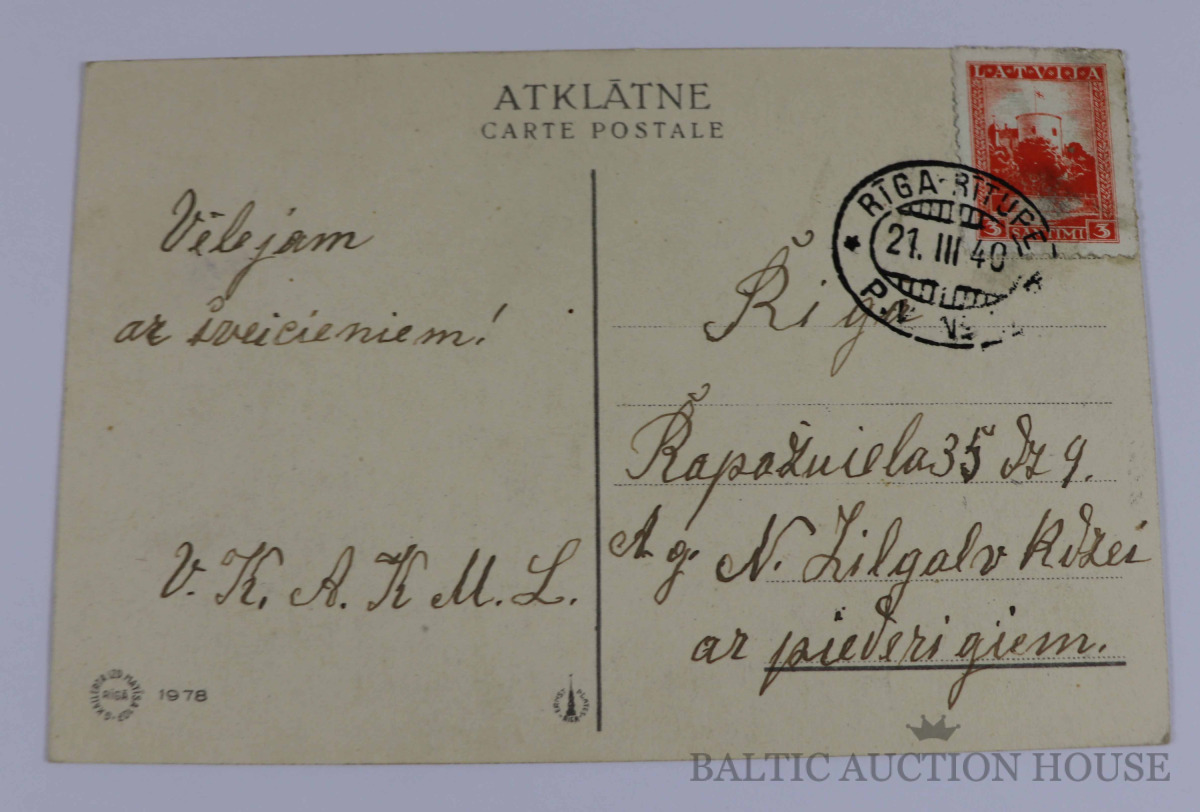 ATKLĀTNE
CARTE POSTALE
LATVIJA
3 SANTIMI 3
RĪGA-RĪTUPE
21. III 40
P.N. №
Vēlejam
ar šveicieniem!
V. K. A. K M. L.
Rīga
dz 9.
A. g. N. Zilgalv kdzei
ar piederīgiem.
RĪGA
1978
BALTIC AUCTION HOUSE